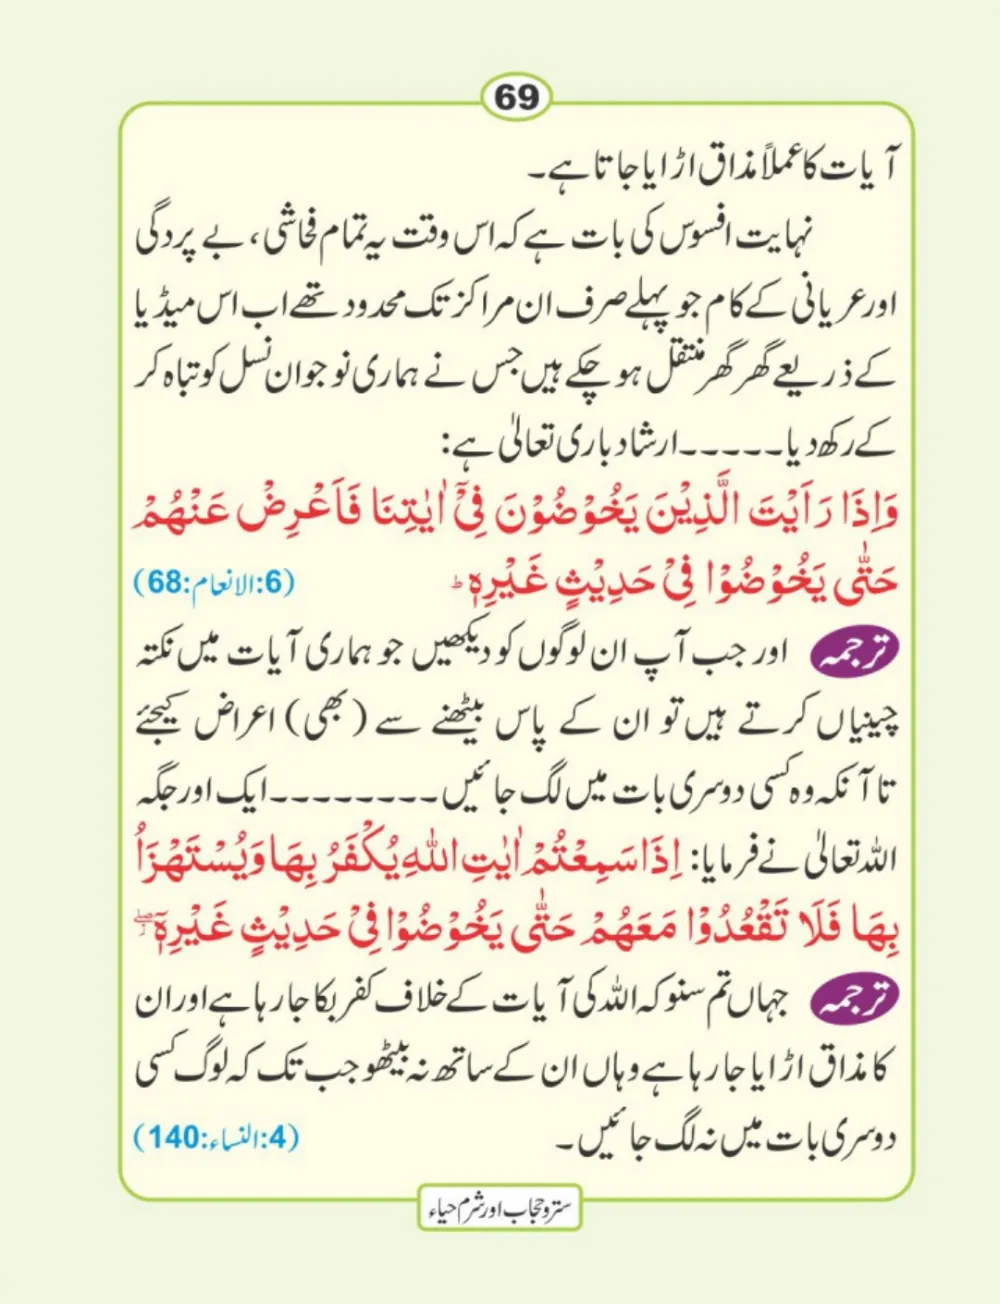 69
آیات کا عملاً مذاق اڑایا جاتا ہے۔
نہایت افسوس کی بات ہے کہ اس وقت یہ تمام فحاشی، بے پردگی
اور عریانی کے کام جو پہلے صرف ان مراکز تک محدود تھے اب اس میڈیا
کے ذریعے گھر گھر منتقل ہو چکے ہیں جس نے ہماری نوجوان نسل کو تباہ کر
کے رکھ دیا۔۔۔۔۔ارشاد باری تعالیٰ ہے:
وَاِذَا رَاَیْتَ الَّذِیْنَ یَخُوْضُوْنَ فِیْۤ اٰیٰتِنَا فَاَعْرِضْ عَنْهُمْ
حَتّٰی یَخُوْضُوْا فِیْ حَدِیْثٍ غَیْرِهٖ ؕ (6:الانعام:68)
ترجمہ اور جب آپ ان لوگوں کو دیکھیں جو ہماری آیات میں نکتہ
چینیاں کرتے ہیں تو ان کے پاس بیٹھنے سے (بھی) اعراض کیجئے
تا آنکہ وہ کسی دوسری بات میں لگ جائیں۔۔۔۔۔۔۔۔ایک اور جگہ
اللہ تعالیٰ نے فرمایا: اِذَا سَمِعْتُمْ اٰیٰتِ اللّٰهِ یُکْفَرُ بِهَا وَیُسْتَهْزَاُ
بِهَا فَلَا تَقْعُدُوْا مَعَهُمْ حَتّٰی یَخُوْضُوْا فِیْ حَدِیْثٍ غَیْرِهٖۤ ۖ
ترجمہ جہاں تم سنو کہ اللہ کی آیات کے خلاف کفر بکا جا رہا ہے اور ان
کا مذاق اڑایا جا رہا ہے وہاں ان کے ساتھ نہ بیٹھو جب تک کہ لوگ کسی
دوسری بات میں نہ لگ جائیں۔ (4:النساء:140)
ستر و حجاب اور شرم حیاء